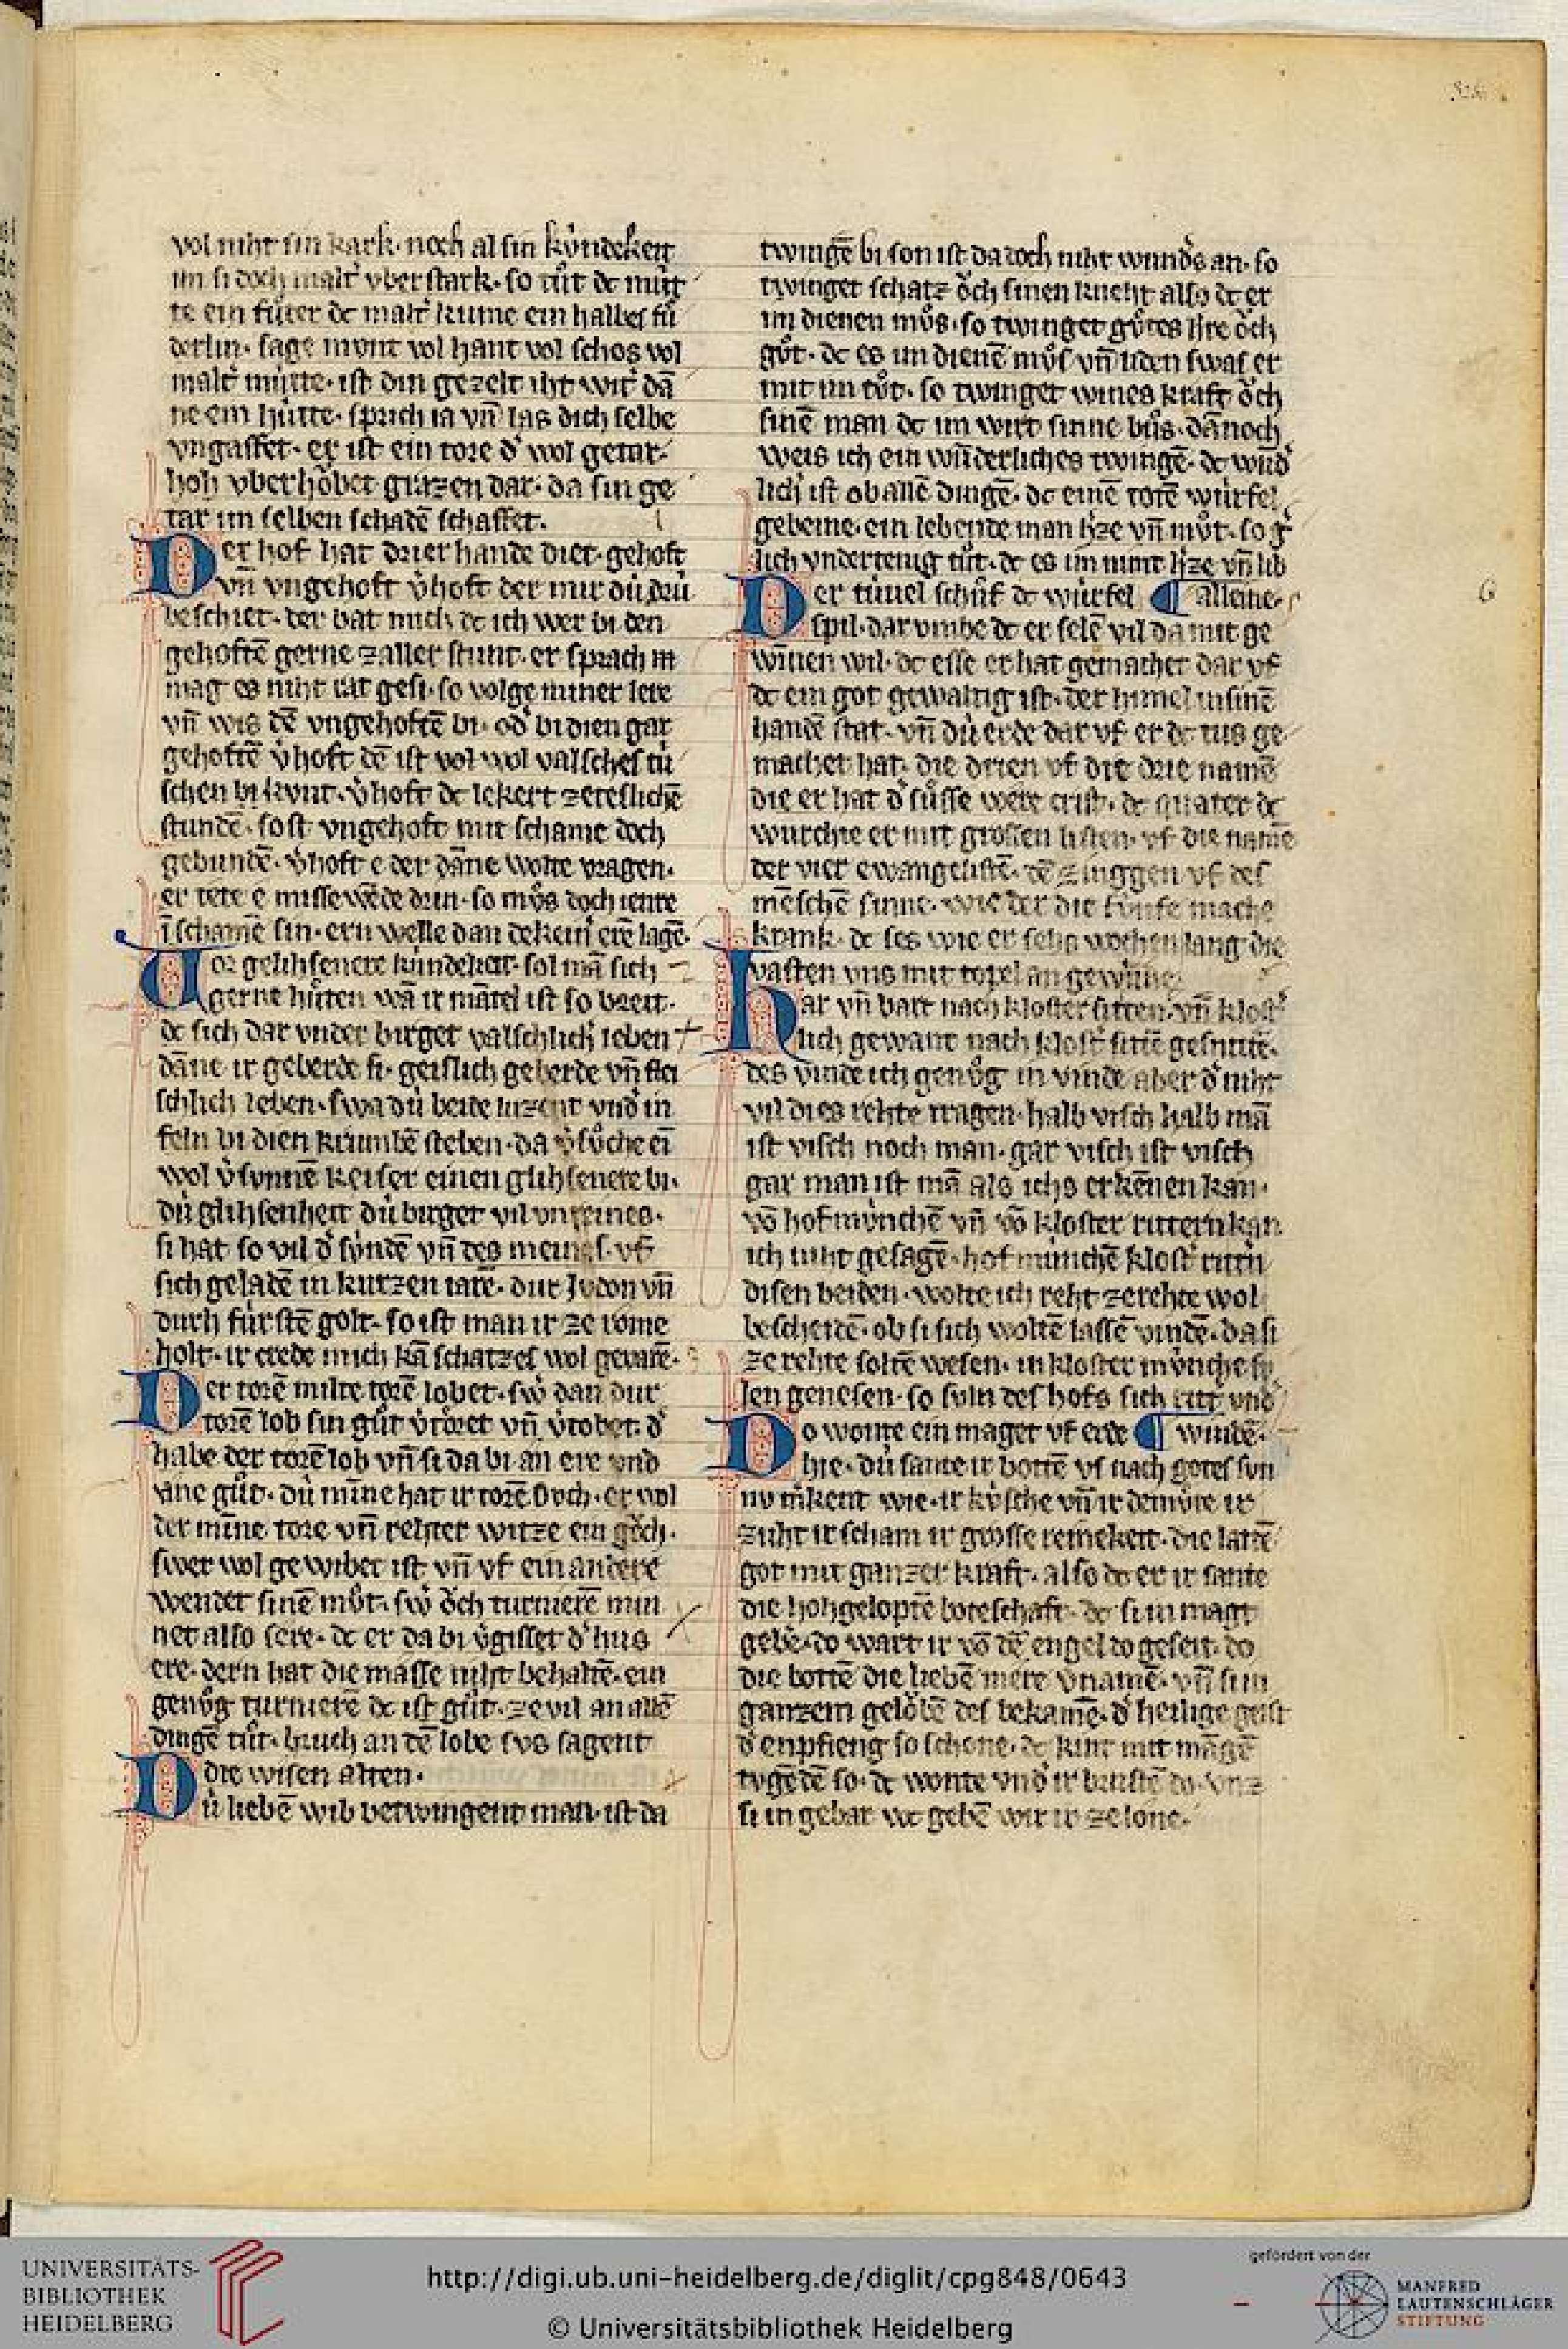 vol niht sin kark· noch al sin kúndekeit
im si doch malt͛ vber stark· so tůt dc mút
te ein fůter dc malt͛ kume ein halbes fů
derlin· sage munt vol hant vol schos vol
malt͛ mútte· ist din gezelt iht wit͛ dā
ne ein hútte· sprich ia vn̄ las dich selbe
vngaffet· er ist ein tore d͛ wol getar
hoh vber hǒbet gutzen dar· da sin ge
tar im selben schadē schaffet.
Der hof hat drier hande diet· gehoft
vn̄ vngehoft v͛hoft der mir dú drú
beschiet· der bat mich dc ich wer bi den
gehoftē gerne zaller stunt· er sprach
mag es niht rat gesi· so volge miner lere
vn̄ wis dē vngehoftē bi· od͛ bi dien gar
gehoftē v͛hoft dē ist vol wol valsches tú
schen bi kunt· v͛hoft dc lekert zetelichē
stundē· so st vngehoft mit schame doch
gebundē· v͛hoft e der dāne wolte vragen·
er tete e missewēde drin· so můs doch iente
ī schame sin· ern welle dan dekein erē lagē·
Vor gelihsenere kúndekeit· sol mā sich
gerne hůten wā ir mātel ist so breit·
dc sich dar vnder birget valschlich leben
dāne ir geberde si· geislich geberde vn̄ flei
schlich leben· swa dú beide luzent vnd͛ in
feln bi dien krumbē steben· da v͛sůche ei
wol v͛sunnē keiser einen glihsenere bi·
dú glihsenheit dú birget vil vnreines·
si hat so vil d͛ súndē vn̄ des meines· vf
sich geladē in kurtzen iarē· dur Judon vn̄
durh fúrstē golt· so ist man ir ze rome
holt· ir crede mich kā schatzes wol gevarē·
Der torē milte torē lobet· sw͛ dan dur
torē lob sin gůt v͛tôret vn̄ v͛tobet· d͛
habe der torē lob vn̄ si da bi an ere vnd
ane gůt· dú mīne hat ir torē ǒch· er vol
der mīne tore vn̄ rehter witze ein gǒch·
swer wol gewibet ist vn̄ vf ein andere
wendet sinē můt· sw͛ ǒch turnierē min
net also sere· dc er da bi v͛gisset d͛ hus
ere· dern hat die masse niht behaltē· ein
genůg turnierē dc ist gůt· ze vil an allē
dingē tůt· bruch an dē lobe sus sagent
die wisen alten·
Dú liebē wib betwingent man· ist da
twingē bi son ist da doch niht wund͛s an· so
twinget schatz ǒch sinen kneht also dc er
im dienen můs· so twinget gůtes ǒch
gůt· dc es im dienē můs vn̄ liden swas er
mit im tůt· so twinget wines kraft ǒch
sinē man dc im wirt sinne bůs· dānoch
weis ich ein wūderliches twingē· dc wūd͛
lich ist ob allē dingē· dc einē totē wúrfel
gebeine· ein lebende man h͛ze vn̄ můt· so g͛
lich vndertenig tůt· dc es im nimt h͛ze vn̄ lib
Der túuel schůf dc wúrfel ¶ alleine·
spil· dar vmbe dc er selē vil da mit ge
wīnen wil· dc esse er hat gemachet dar vf
dc ein got gewaltig ist· der himel in sinē
handē stat· vn̄ dú erde dar vf er dc tus ge
machet hat· die drien vf die drie namē
die er hat d͛ sůsse were crist· dc quater dc
wurchte er mit grossen listen· vf die namē
der vier ewangelistē· dē zinggen vf des
mēschē sinne· wie der die fúnfe mache
krank· dc ses wie er sehs wochen lang die
vasten vns mit topel an gewinne
Har vn̄ bart nach kloster sitten· vn̄ klost͛
lich gewant nach klost͛ sittē gesnittē·
des vinde ich genůg in vinde aber d͛ niht
vil dies rehte tragen· halb visch halb mā
ist visch noch man· gar visch ist visch
gar man ist mā als ichs erkēnen kan·
vō hofmúnchē vn̄ vō kloster rittern kan
ich niht gesagē· hofmúnchē klost͛ rittn͛
disen beiden· wolte ich reht ze rehte wol
bescheidē· ob si sich woltē lassē vindē· da si
ze rehte soltē wesen· in kloster múnche su
len genesen· so suln des hofs sich ritt͛ vnd͛
Do wonte ein maget vf erde ¶ windē·
hie· dú sante ir bottē vf nach gotes sun
nv m͛kent wie· ir kúsche vn̄ ir demůte ir
zuht ir scham ir grosse reinekeit· die latē
got mit ganzer kraft· also dc er ir sante
die hohgeloptē boteschaft· dc si in magt
gebē· do wart ir vō dē engel do geseit· do
die bottē die liebē mere v͛namē· vn̄ si in
ganzem gelǒbē des bekamē· d͛ heilige geist
d͛ enpfieng so schone· dc kint mit māgē
tvgēdē so· dc wonte vnd͛ ir brústē do· vnz
si in gebar wc gebē wir ir ze lone·
G
UNIVERSITÄTS-
BIBLIOTHEK
HEIDELBERG
http://digi.ub.uni-heidelberg.de/diglit/cpg848/0643
© Universitätsbibliothek Heidelberg
gefördert von der
MANFRED
LAUTENSCHLÄGER
STIFTUNG